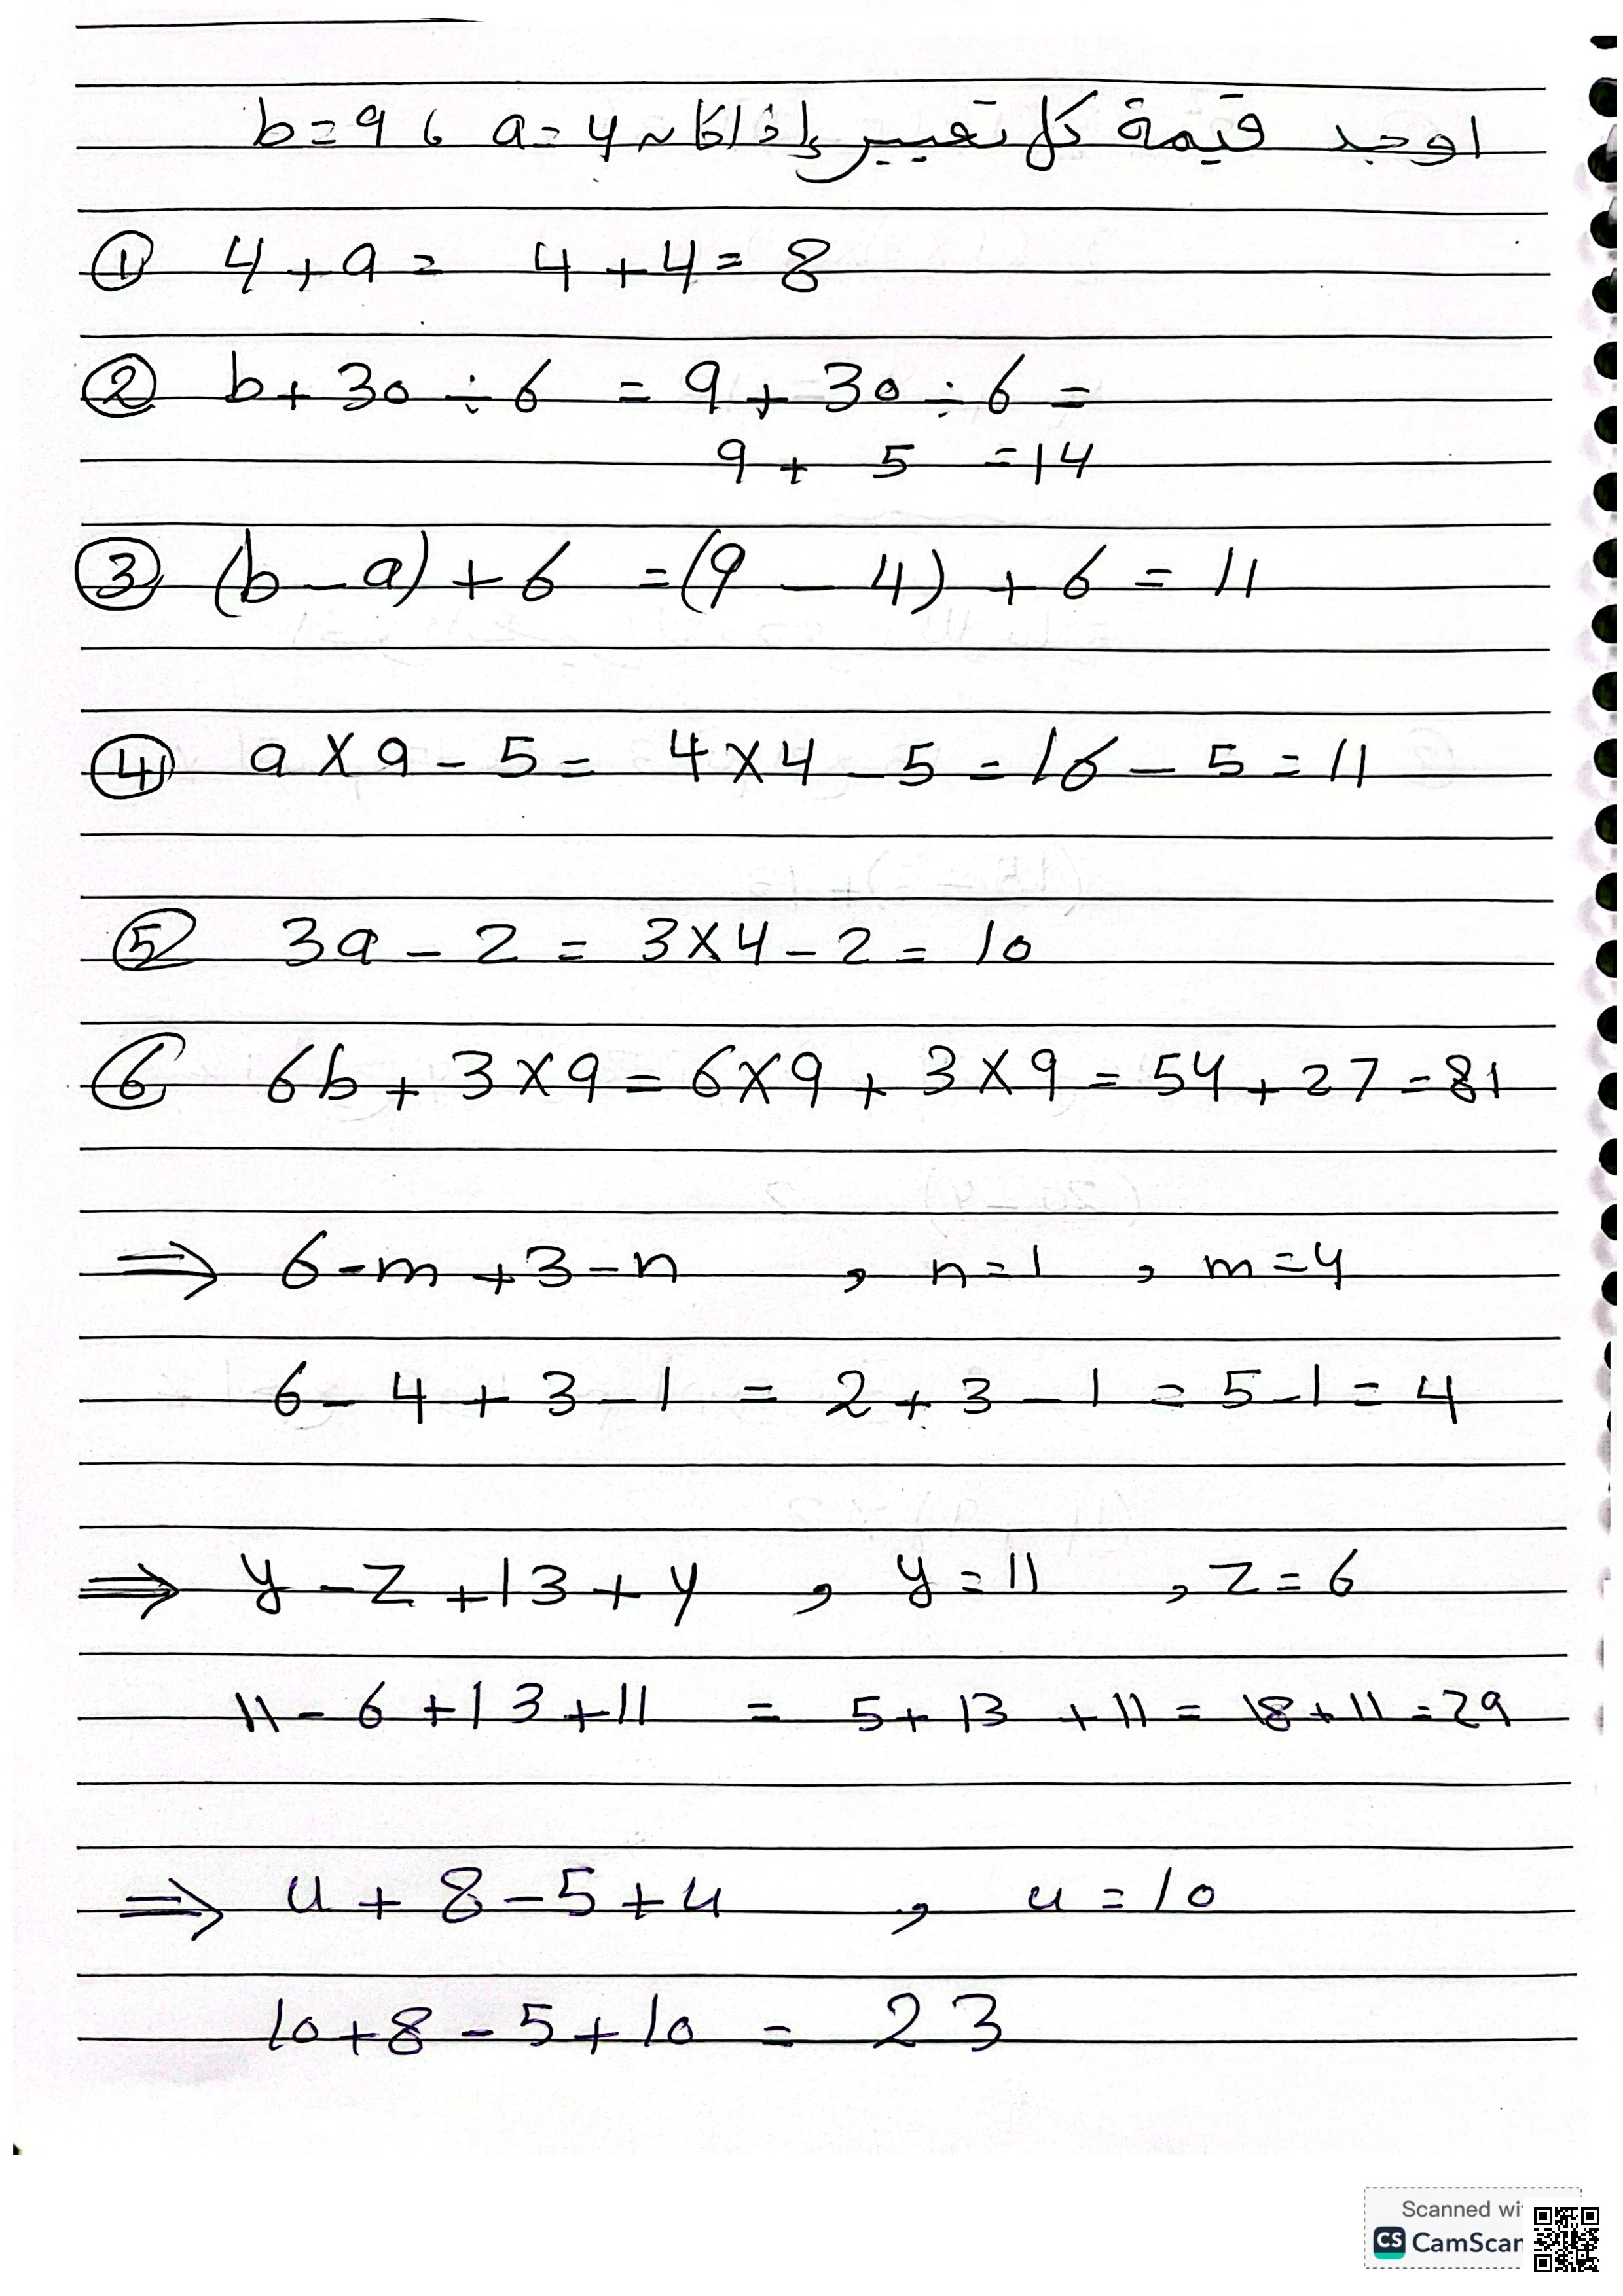 اوجد قيمة كل تعبير إذا كان a=4 ، b=9
① 4+a= 4+4=8
② b+30÷6 =9+30÷6=
9+5=14
③ (b-a)+6 =(9-4)+6=11
④ a×a-5= 4×4-5=16-5=11
⑤ 3a-2=3×4-2=10
⑥ 6b+3×9=6×9+3×9=54+27=81
⇒ 6-m+3-n , n=1 , m=4
6-4+3-1 = 2+3-1=5-1=4
⇒ y-z+13+y , y=11 , z=6
11-6+13+11 = 5+13+11=18+11=29
⇒ u+8-5+u , u=10
10+8-5+10 = 23
Scanned wi
CS CamScan